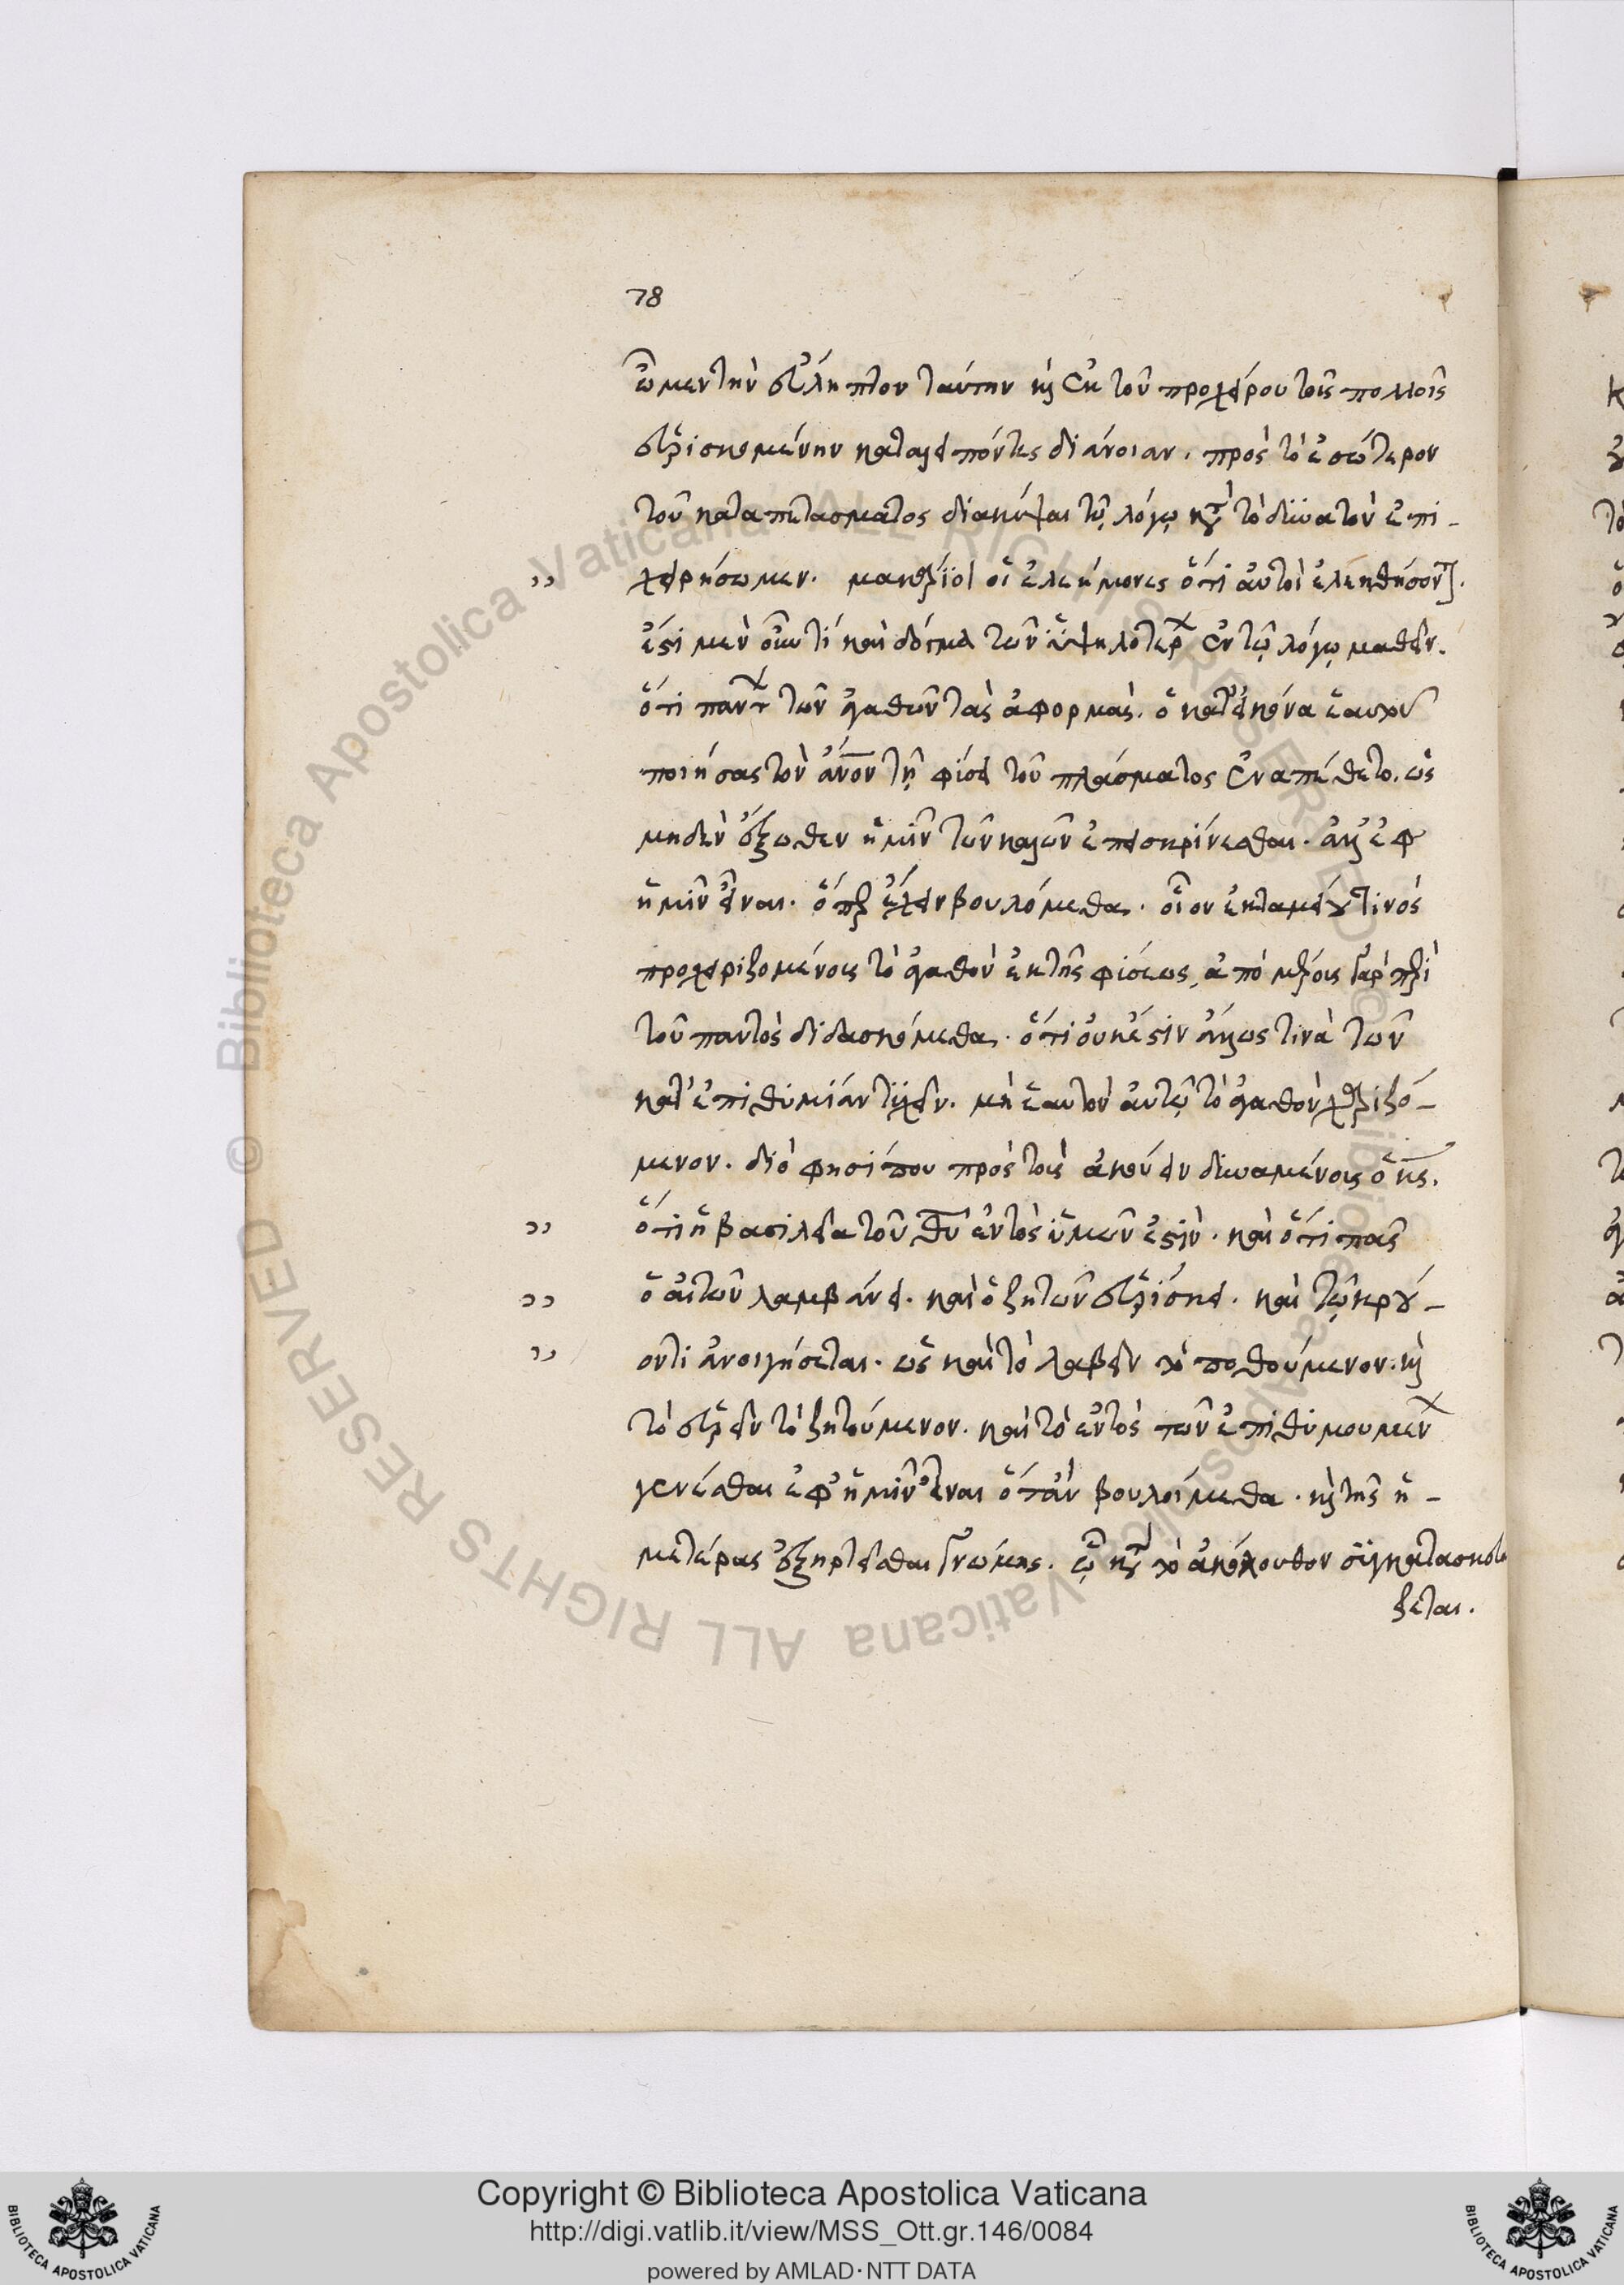 78
ὦμεν τὴν εὔληπτον ταύτην καὶ ἐκ τοῦ προχείρου τοῖς πολλοῖς
εὑρισκομένην καταλειπόντες διάνοιαν. πρὸς τὸ ἐσώτερον
τοῦ καταπετάσματος διακύψαι τῷ λόγῳ κατὰ τὸ δυνατὸν ἐπι-
χειρήσωμεν. μακάριοι οἱ ἐλεήμονες ὅτι αὐτοὶ ἐλεηθήσονται.
ἔστι μὲν οὖν τί καὶ δόγμα τῶν ὑψηλοτέρων ἐν τῷ λόγῳ μαθεῖν.
ὅτι πάντων τῶν ἀγαθῶν τὰς ἀφορμὰς. ὁ κατ' εἰκόνα ἑαυτοῦ
ποιήσας τὸν ἄνον τῇ φύσει τοῦ πλάσματος ἐναπέθετο. ὡς
μηδὲν ἔξωθεν ἡμῖν τῶν καλῶν ἐπεισκρίνεσθαι. ἀλλ' ἐφ
ἡμῖν εἶναι. ὅπερ ἔχειν βουλόμεθα. οἷον ἐκ ταμείου τινὸς
προχειριζομένοις τὸ ἀγαθὸν ἐκ τῆς φύσεως, ἀπὸ μέρους γὰρ περὶ
τοῦ παντὸς διδασκόμεθα. ὅτι οὐκ ἔστιν ἄλλως τινὰ τῶν
κατ' ἐπιθυμίαν τυχεῖν. μὴ ἑαυτὸν αὐτῷ τὸ ἀγαθὸν χαριζό-
μενον. διό φησί που πρὸς τοὺς ἀκούειν δυναμένους ὁ κς.
ὅτι ἡ βασιλεία τοῦ θυ ἐντὸς ὑμῶν ἐστὶν. καὶ ὅτι πᾶς
ὁ αἰτῶν λαμβάνει. καὶ ὁ ζητῶν εὑρίσκει. καὶ τῷ κρού-
οντι ἀνοιγήσεται. ὡς καὶ τὸ λαβεῖν τὸ ποθούμενον. καὶ
τὸ εὑρεῖν τὸ ζητούμενον. καὶ τὸ ἐντὸς τῶν ἐπιθυμουμένων
γενέσθαι ἐφ' ἡμῖν εἶναι ὅταν βουλοίμεθα. καὶ τῆς ἡ-
μετέρας ἐξηρτεῖσθαι γνώμης. ᾧ κατὰ τὸ ἀκόλουθον συγκατασκευά
ζεται.
Copyright © Biblioteca Apostolica Vaticana
http://digi.vatlib.it/view/MSS_Ott.gr.146/0084
powered by AMLAD·NTT DATA